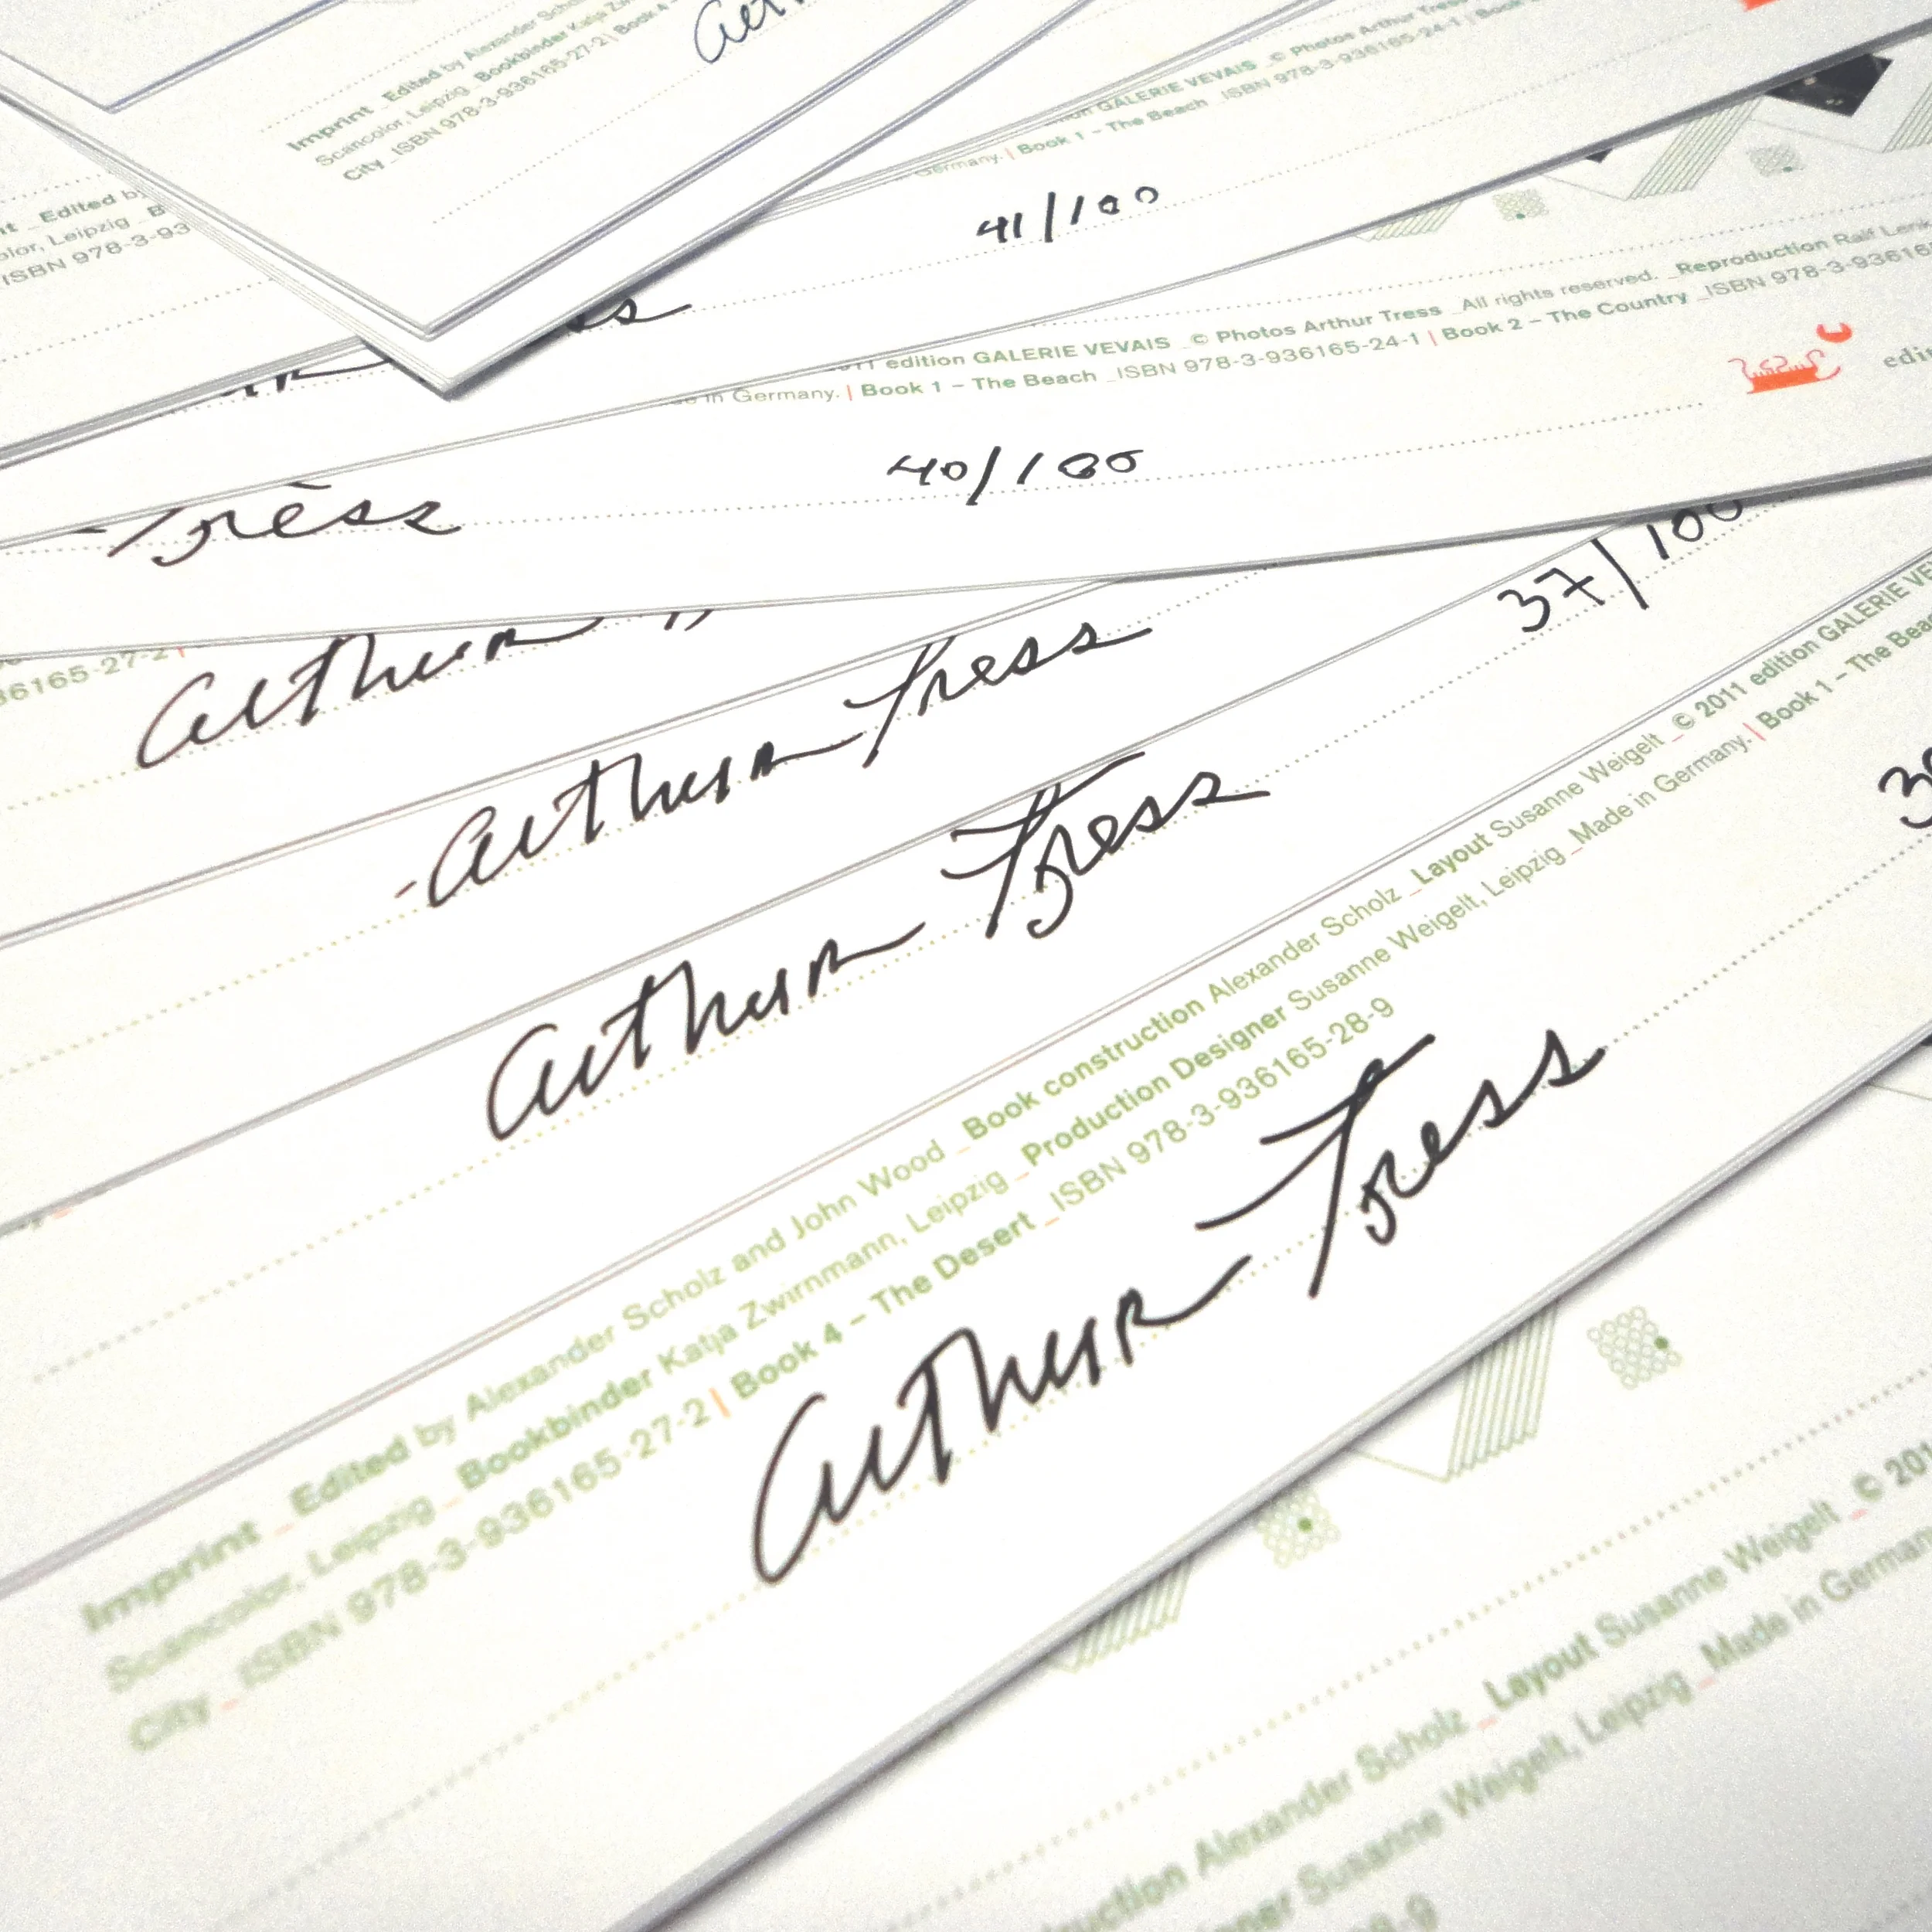 Imprint _Edited by Alexander
Scancolor, Leipzig _Bookbinder Katja
City _ISBN 978-3-936165-27-2 | Book 4
GALERIE VEVAIS _© Photos Arthur
Germany. | Book 1 – The Beach _ISBN 978-3-936165-24-1 |
Edited by
Leipzig
ISBN 978-3-93
41/100
edition GALERIE VEVAIS _© Photos Arthur Tress _All rights reserved. _Reproduction Ralf
in Germany. | Book 1 – The Beach _ISBN 978-3-936165-24-1 | Book 2 – The Country _ISBN 978-3-93616
Tress 40/100
36165-27-2 |
Arthur
Arthur Tress
Arthur Tress 37/100
Imprint _Edited by Alexander Scholz and John Wood _Book construction Alexander Scholz _Layout Susanne Weigelt _© 2011 edition GALERIE
Scancolor, Leipzig _Bookbinder Katja Zwirnmann, Leipzig _Production Designer Susanne Weigelt, Leipzig _Made in Germany. | Book 1 – The
City _ISBN 978-3-936165-27-2 | Book 4 – The Desert _ISBN 978-3-936165-28-9
Arthur Tress
Alexander Scholz _Layout Susanne Weigelt _© 201
Susanne Weigelt, Leipzig _Made in